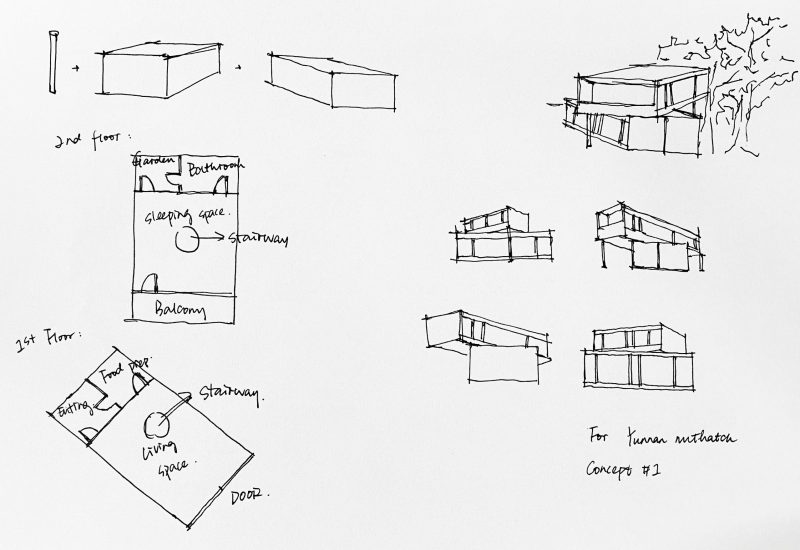 2nd floor:
Garden
Bathroom
Sleeping space.
Stairway
Balcony
1st Floor:
Food prep.
Eating
Stairway.
Living
space.
DOOR.
For
Concept #1